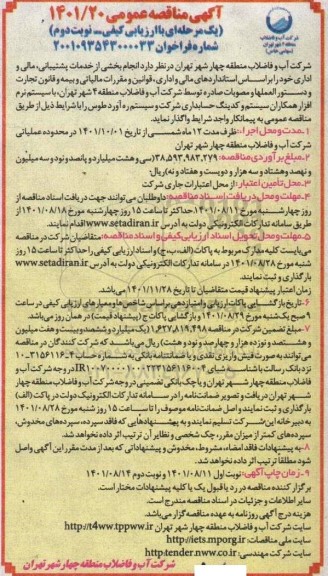 آگهی مناقصه عمومی ۱۴۰۱/۲۰
(یک مرحله‌ای با ارزیابی کیفی - نوبت دوم)
شماره فراخوان ۲۰۰۱۰۹۳۵۴۳۰۰۰۰۳۳
شرکت آب و فاضلاب
منطقه ۴ شهر تهران
شرکت آب و فاضلاب منطقه چهار شهر تهران در نظر دارد انجام بخشی از خدمات پشتیبانی، مالی و
اداری خود را بر اساس استانداردهای مالی و اداری، قوانین و مقررات مالیاتی و بیمه و قانون تجارت
و دستورالعملها و مصوبات صادره توسط شرکت آب و فاضلاب منطقه ۴ شهر تهران، با سیستم نرم
افزار همکاران سیستم و کدینگ حسابداری شرکت و سیستم ره آورد طوس را با شرایط ذیل از طریق
مناقصه عمومی به پیمانکار واجد شرایط واگذار نماید.
۱- مدت و محل اجرا: ظرف مدت ۱۲ ماه شمسی از تاریخ ۱۴۰۱/۱۰/۰۱ در محدوده عملیاتی
شرکت آب و فاضلاب منطقه چهار شهر تهران
۲- مبلغ برآوردی مناقصه: ۳۸,۵۹۳,۹۸۳,۲۷۹ (سی و هشت میلیارد و پانصد و نود و سه میلیون
و نهصد و هشتاد و سه هزار و دویست و هفتاد و نه) ریال
۳- محل تامین اعتبار: از محل اعتبارات جاری شرکت
۴- مهلت و محل دریافت اسناد مناقصه: داوطلبان می‌توانند جهت دریافت اسناد مناقصه از
روز چهارشنبه مورخ ۱۴۰۱/۰۸/۱۱ حداکثر تا ساعت ۱۵ روز چهارشنبه مورخ ۱۴۰۱/۰۸/۱۸ از
طریق سامانه تدارکات الکترونیکی دولت به آدرس www.setadiran.ir اقدام نمایند.
۵- مهلت و محل تحویل اسناد ارزیابی کیفی و اسناد مناقصه: متقاضیان شرکت در مناقصه
می‌بایست کلیه مدارک مربوط به پاکات (الف، ب، ج) و اسناد ارزیابی کیفی را حداکثر تا ساعت ۱۵ روز
شنبه مورخ ۱۴۰۱/۰۸/۲۸ در سامانه تدارکات الکترونیکی دولت به آدرس www.setadiran.ir
بارگذاری و ثبت نمایند.
زمان اعتبار پیشنهاد قیمت متقاضیان تا تاریخ ۱۴۰۱/۱۱/۲۸ می‌باشد
۶- تاریخ بازگشایی پاکات: ارزیابی و امتیازدهی بر اساس شاخص‌ها و معیارهای ارزیابی کیفی در ساعت
۹ صبح یک‌شنبه مورخ ۱۴۰۱/۰۸/۲۹ و بازگشایی پاکات ج (پیشنهاد قیمت) در همان روز می‌باشد.
۷- مبلغ تضمین شرکت در مناقصه ۱,۶۲۷,۸۱۹,۴۹۸ (یک میلیارد و ششصد و بیست و هفت میلیون
و هشتصد و نوزده هزار و چهارصد و نود و هشت) ریال می‌باشد که شرکت کنندگان در مناقصه
می توانند به صورت فیش واریزی نقدی و یا ضمانتنامه بانکی به شماره حساب
نزد بانک رسالت با شناسه شبای در وجه شرکت آب و
فاضلاب منطقه چهار شهر تهران و یا چک بانکی تضمینی در وجه شرکت آب و فاضلاب منطقه چهار
شهر تهران دریافت و تصویر ضمانت‌نامه را در سامانه تدارکات الکترونیک دولت در پاکت (الف)
بارگذاری و ثبت نمایند و اصل ضمانت‌نامه موصوف را تا ساعت ۱۵ روز شنبه مورخ ۱۴۰۱/۰۸/۲۸
به دبیرخانه این شرکت تسلیم نمایند و به پیشنهادهایی که فاقد سپرده، سپرده‌های مخدوش،
سپرده‌های کمتر از میزان مقرر، چک شخصی و نظایر آن ترتیب اثر داده نخواهد شد.
۸- به پیشنهادات فاقد امضاء، مشروط، مخدوش و پیشنهاداتی که بعد از مدت مقرر این آگهی واصل
شود مطلقا ترتیب اثر داده نخواهد شد.
۹- زمان چاپ آگهی: نوبت اول ۱۴۰۱/۰۸/۱۱ و نوبت دوم ۱۴۰۱/۰۸/۱۴
برگزار کننده مناقصه در رد یا قبول یک یا کلیه پیشنهادات مختار است.
سایر اطلاعات و جزئیات در اسناد مناقصه مندرج است.
هزینه درج آگهی روزنامه به عهده مناقصه گزار می‌باشد.
سایت شرکت آب و فاضلاب منطقه چهار شهر تهران http://t4ww.tppww.ir
سایت ملی مناقصات: http://iets.mporg.ir
سایت شرکت مهندسی: http:tender.nww.co.ir
شرکت آب و فاضلاب منطقه چهار شهر تهران